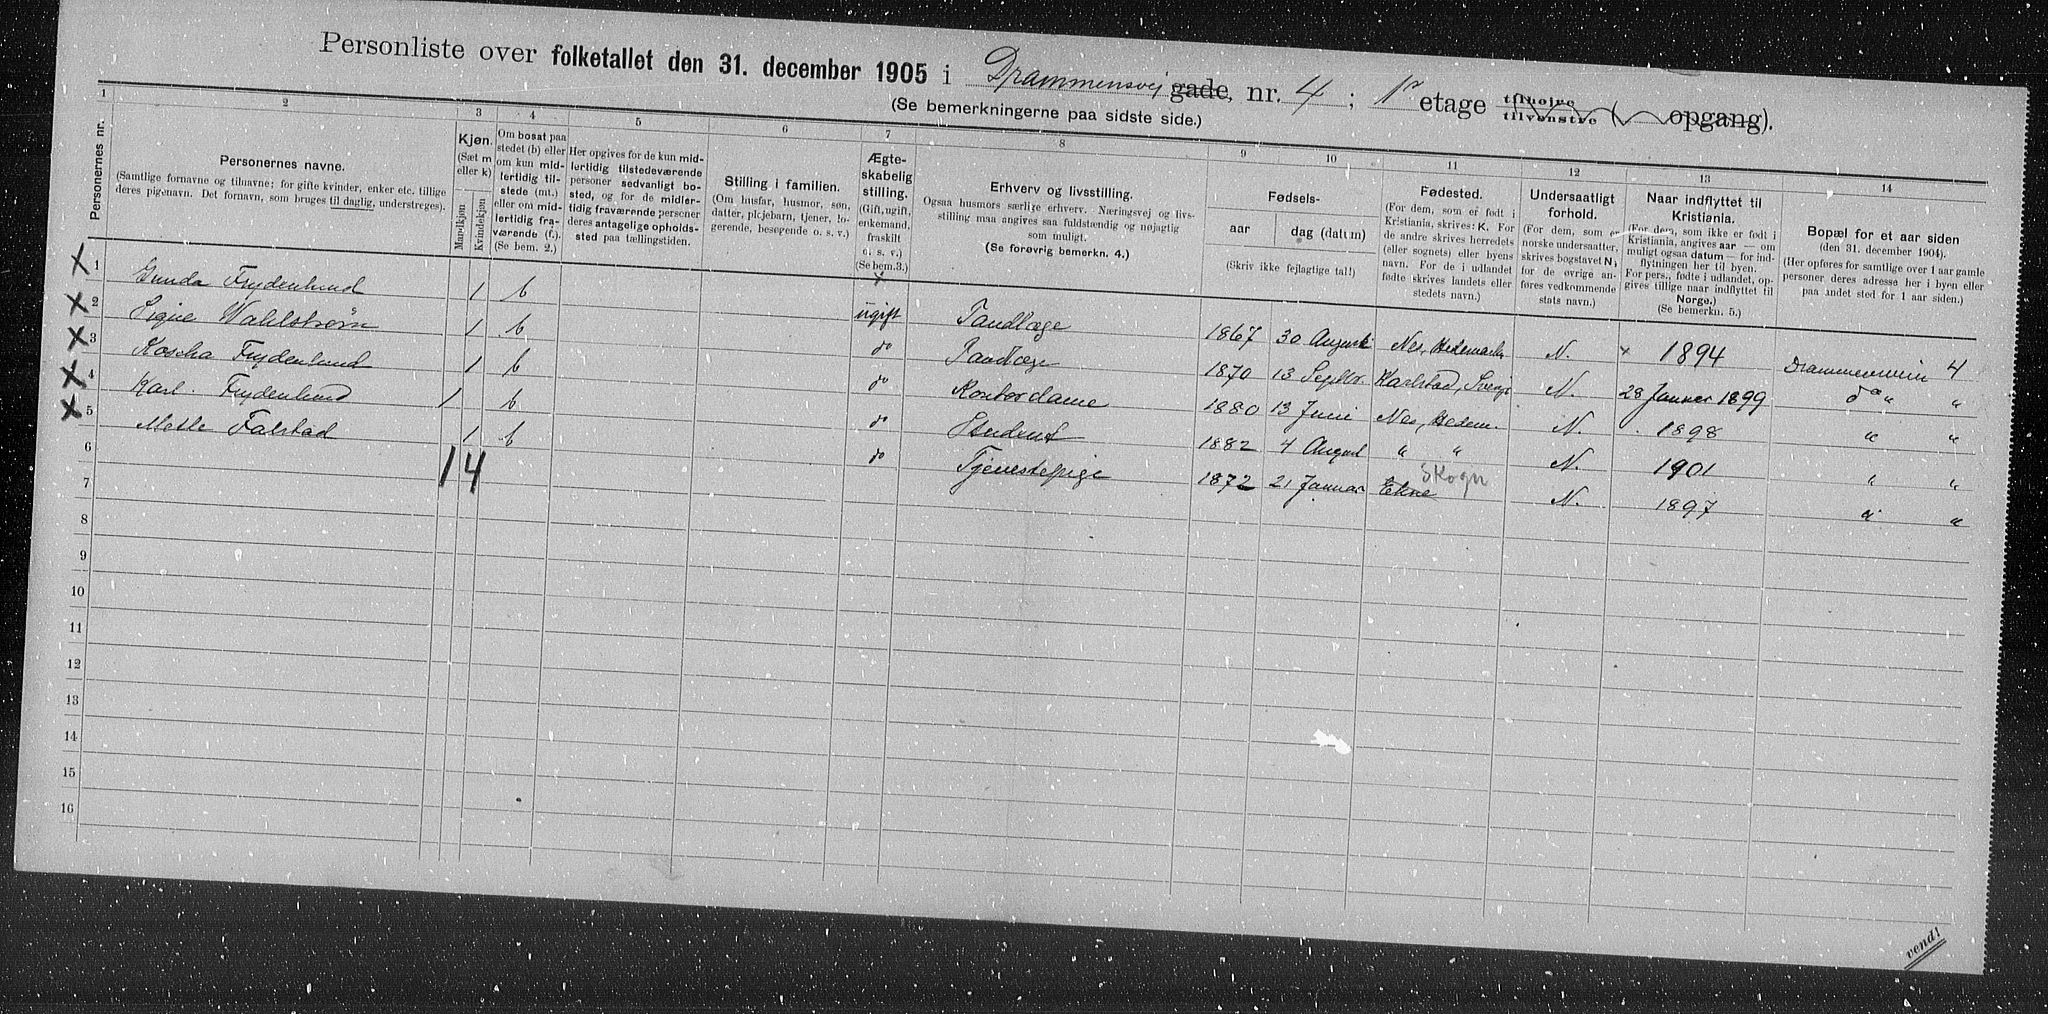 Personliste over folketallet den 31. december 1905 i Drammensvej gade, nr. 4 ; 1ste etage tilhøire tilvenstre ( opgang).
(Se bemerkningerne paa sidste side.)
1 2 3 4 5 6 7 8 9 10 11 12 13 14
Personernes nr.
Personernes navne.
(Samtlige fornavne og tilnavne; for gifte kvinder, enker etc. tillige deres pigenavn. Det fornavn, som bruges til daglig, understreges).
Kjøn.
(Sæt m eller k)
Mandkjøn
Kvindekjøn
Om bosat paa stedet (b) eller om kun midlertidig tilstede (mt.) eller om midlertidig fraværende (f.). (Se bem. 2.)
Her opgives for de kun midlertidig tilstedeværende personer sedvanligt bosted, og for de midlertidig fraværende personer deres antagelige opholdssted paa tællingstiden.
Stilling i familien.
(Om husfar, husmor, søn, datter, plejebarn, tjener, logerende, besøgende o. s. v.)
Ægteskabelig stilling.
(Gift, ugift, enkemand, fraskilt o. s. v.)
(Se bem. 3.)
Erhverv og livsstilling.
Ogsaa husmors særlige erhverv. Næringsvej og livsstilling maa angives saa fuldstændig og nøjagtig som muligt.
(Se forøvrig bemerkn. 4.)
Fødsels-
aar dag (datum)
(Skriv ikke fejlagtige tal!)
Fødested.
(For dem, som er født i Kristiania, skrives: K. For de andre skrives herredets (eller sognets) eller byens navn. For de i udlandet fødte skrives landets eller stedets navn.)
Undersaatligt forhold.
(For dem, som er norske undersaatter, skrives bogstavet N; for de øvrige anføres vedkommende stats navn.)
Naar indflyttet til Kristiania.
(For dem, som ikke er født i Kristiania, angives aar — om muligt ogsaa datum — for indflytningen her til byen. For pers., fødte i udlandet, opgives tillige naar indflyttet til Norge.)
(Se bemerkn. 5.)
Bopæl for et aar siden
(den 31. december 1904).
(Her opføres for samtlige over 1 aar gamle personer deres adresse her i byen eller paa andet sted for 1 aar siden.)
X 1 Gunda Frydenlund 1 b ugift Tandlæge 1867 30 August Nes, Hedemark N. x 1894 Drammensveien 4
X 2 Signe Wahlstrøm 1 b do Tandlæge 1870 13 Septbr. Karlstad, Sverige N. 28 Januar 1899 do " "
X 3 Roscha Frydenlund 1 b do Kontordame 1880 13 Juni Nes, Hedem. N. 1898 " "
X 4 Karl. Frydenlund 1 b do Student 1882 4 August " " N. 1901 " "
X 5 Mette Falstad 1 b do Tjenestepige 1872 21 Januar Ekne Skogn N. 1897 " "
6 1 4
7
8
9
10
11
12
13
14
15
16
vend!